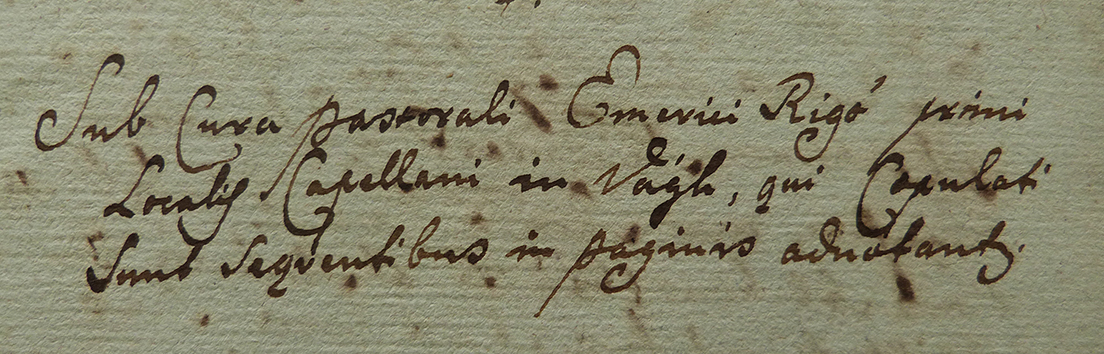 Sub Cura pastorali Emerici Rigó primi
Localis Capellani in Vágh, qui Copulati
Sunt Seqventibus in paginis adnotantr.